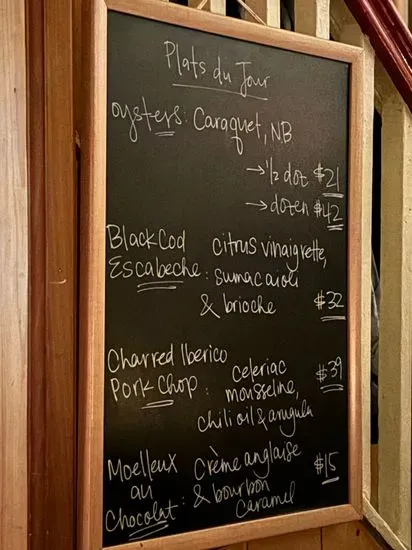 Plats du Jour
oysters: Caraquet, NB
→ 1/2 doz $21
→ dozen $42
Black Cod citrus vinaigrette,
Escabeche: sumac aioli
& brioche $32
Charred Iberico
Pork Chop: celeriac $39
mousseline,
chili oil & arugula
Moelleux crème anglaise $15
au
Chocolat: & bourbon
caramel